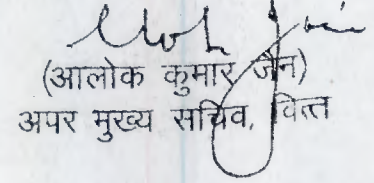 (आलोक कुमार जैन)
अपर मुख्य सचिव, वित्त